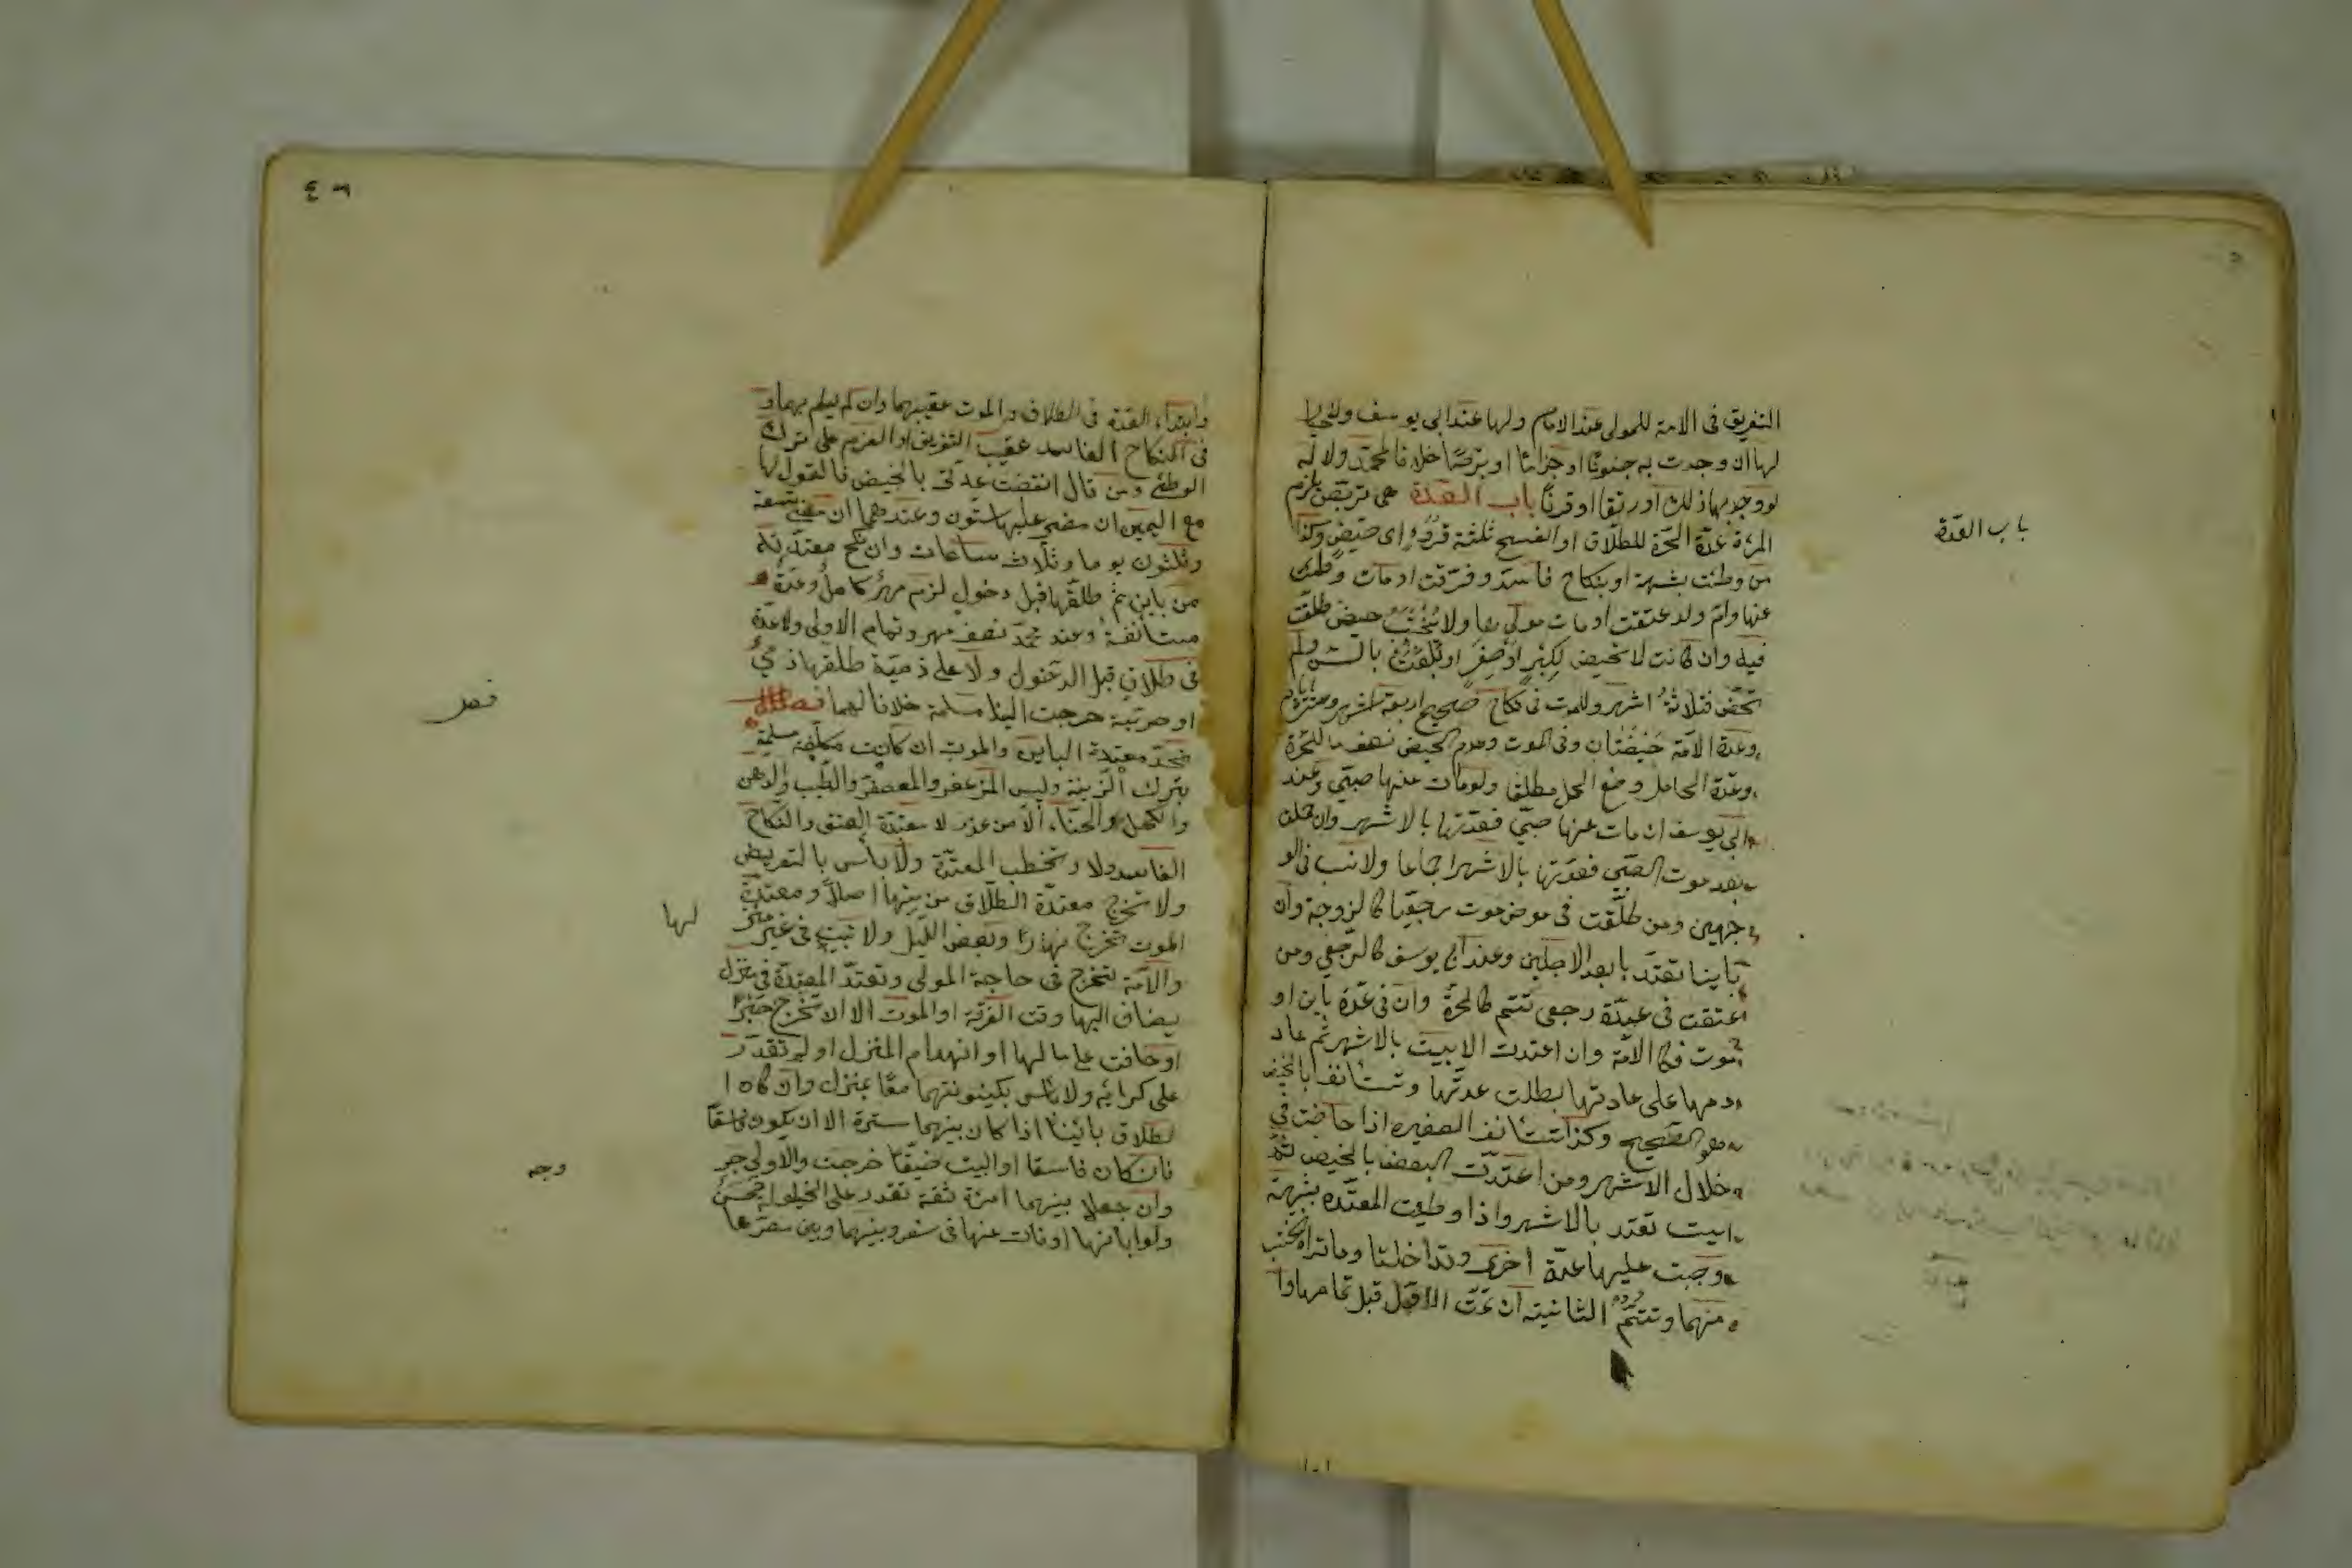 التفريق فى الامة للمولى عند الامام ولها عند ابى يوسف ولا خيار
لها ان وجدت به جنونًا او جذامًا او برصًا خلافا لمحمد ولا له
لو وجد بها ذلك او رتقا او قرنًا باب العدة هى تربص يلزم
المرٔة عدّة الحرّة للطلاق او الفسخ ثلثة قروء اى حيض وكذا
من وطئت بشبهة او بنكاح فاسد وفرقت او مات وطئ
عنها وام ولد عتقت او مات مولٰيها ولا يحتسب حيض طلقت
فيه وان كانت لا تحيض لكبر او صغر او بلغت بالسن ولم
تحض فثلاثة اشهر وللموت فى نكاح صحيح اربعة اشهر وعشرة ايام
وعدة الامة حيضتان وفى الموت وعدم الحيض نصف ما للحرة
وعدّة الحامل وضع الحمل مطلقا ولو مات عنها صبى وعند
ابى يوسف ان مات عنها صبى فعدّتها بالاشهر وان حملت
بعد موت الصبى فعدّتها بالاشهر اجماعا ولا نسب فى الو
جهين ومن طلّقت فى مرض موت رجعيّا كالزوجة وان
باينا تعتدّ بابعد الاجلين وعند ابى يوسف كالرجعى ومن
اعتقت فى عدّة رجعى تتم كالحرّة وان فى عدّة باين او
موت فكالامة وان اعتدت الايسة بالاشهر ثم عاد
دمها على عادتها بطلت عدّتها وتستأنف بالحيض
هو الصحيح وكذا تستأنف الصغيرة اذا حاضت فى
خلال الاشهر ومن اعتدّت البعض بالحيض ثم
ايست تعتد بالاشهر واذا وطئت المعتدّة بشبهة
وجبت عليها عدّة اخرى وتداخلتا وما تراه يحتسب
منهما وتتم الثانية ان تمّت الاولى قبل تمامها وا
باب العدّة
وابتداء العدّة فى الطلاق والموت عقيبهما وان لم تعلم بهما و
فى النكاح الفاسد عقيب التفريق او العزم على ترك
الوطئ ومن قال انقضت عدّتى بالحيض فالقول لها
مع اليمين ان مضى عليها ستون وعندهما ان مضى تسعة
وثلثون يوما وثلاث ساعات وان نكح معتدّته
من باين ثم طلقها قبل دخول لزم مهر كامل وعدّة
مستأنفة وعند محمّد نصف مهر وتمام الاولى ولا عدّة
فى طلاق قبل الدخول ولا على ذميّة طلقها ذمىّ
او حربّية خرجت الينا مسلمة خلافا لهما فصل
تحدّ معتدة الباين والموت ان كانت مكلّفة مسلمة
بترك الزينة ولبس المزعفر والمعصفر والطيب والدهن
والكحل والحنّاء الّا من عذر لا معتدّة العتق والنكاح
الفاسد ولا تخطب المعتدّة ولا بأس بالتعريض
ولا تخرج معتدّة الطّلاق من بيتها اصلاً ومعتدّة
الموت تخرج نهارًا وبعض الليل ولا تبيت فى غير منزلـ
لها
والامة تخرج فى حاجة المولى وتعتدّ المعتدّة فى منزل
يضاف اليها وقت الفرقة او الموت الا ان تخرج جبرًا
او خافت على مالها او انهدام المنزل او لم تقدر
على كرائه ولا بأس بكينونتهما معًا بمنزل وان كان ا
لطلاق بائنًا اذا كان بينهما سترة الا ان يكون فاسقًا
فان كان فاسقا او البيت ضيقًا خرجت والاولى خر
وجه
وان جعلا بينهما امرٔة ثقة تقدر على الحيلولة فحسن
ولو ابانها او مات عنها فى سفر وبينهما وبين مصرها
فصل